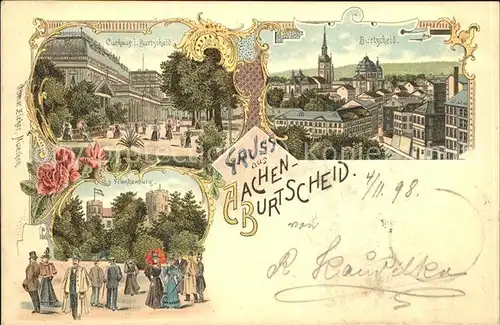 Curhaus i. Burtscheid.
Burtscheid.
Frankenburg.
GRUSS
aus
AACHEN-
BURTSCHEID.
4/11 98.
von